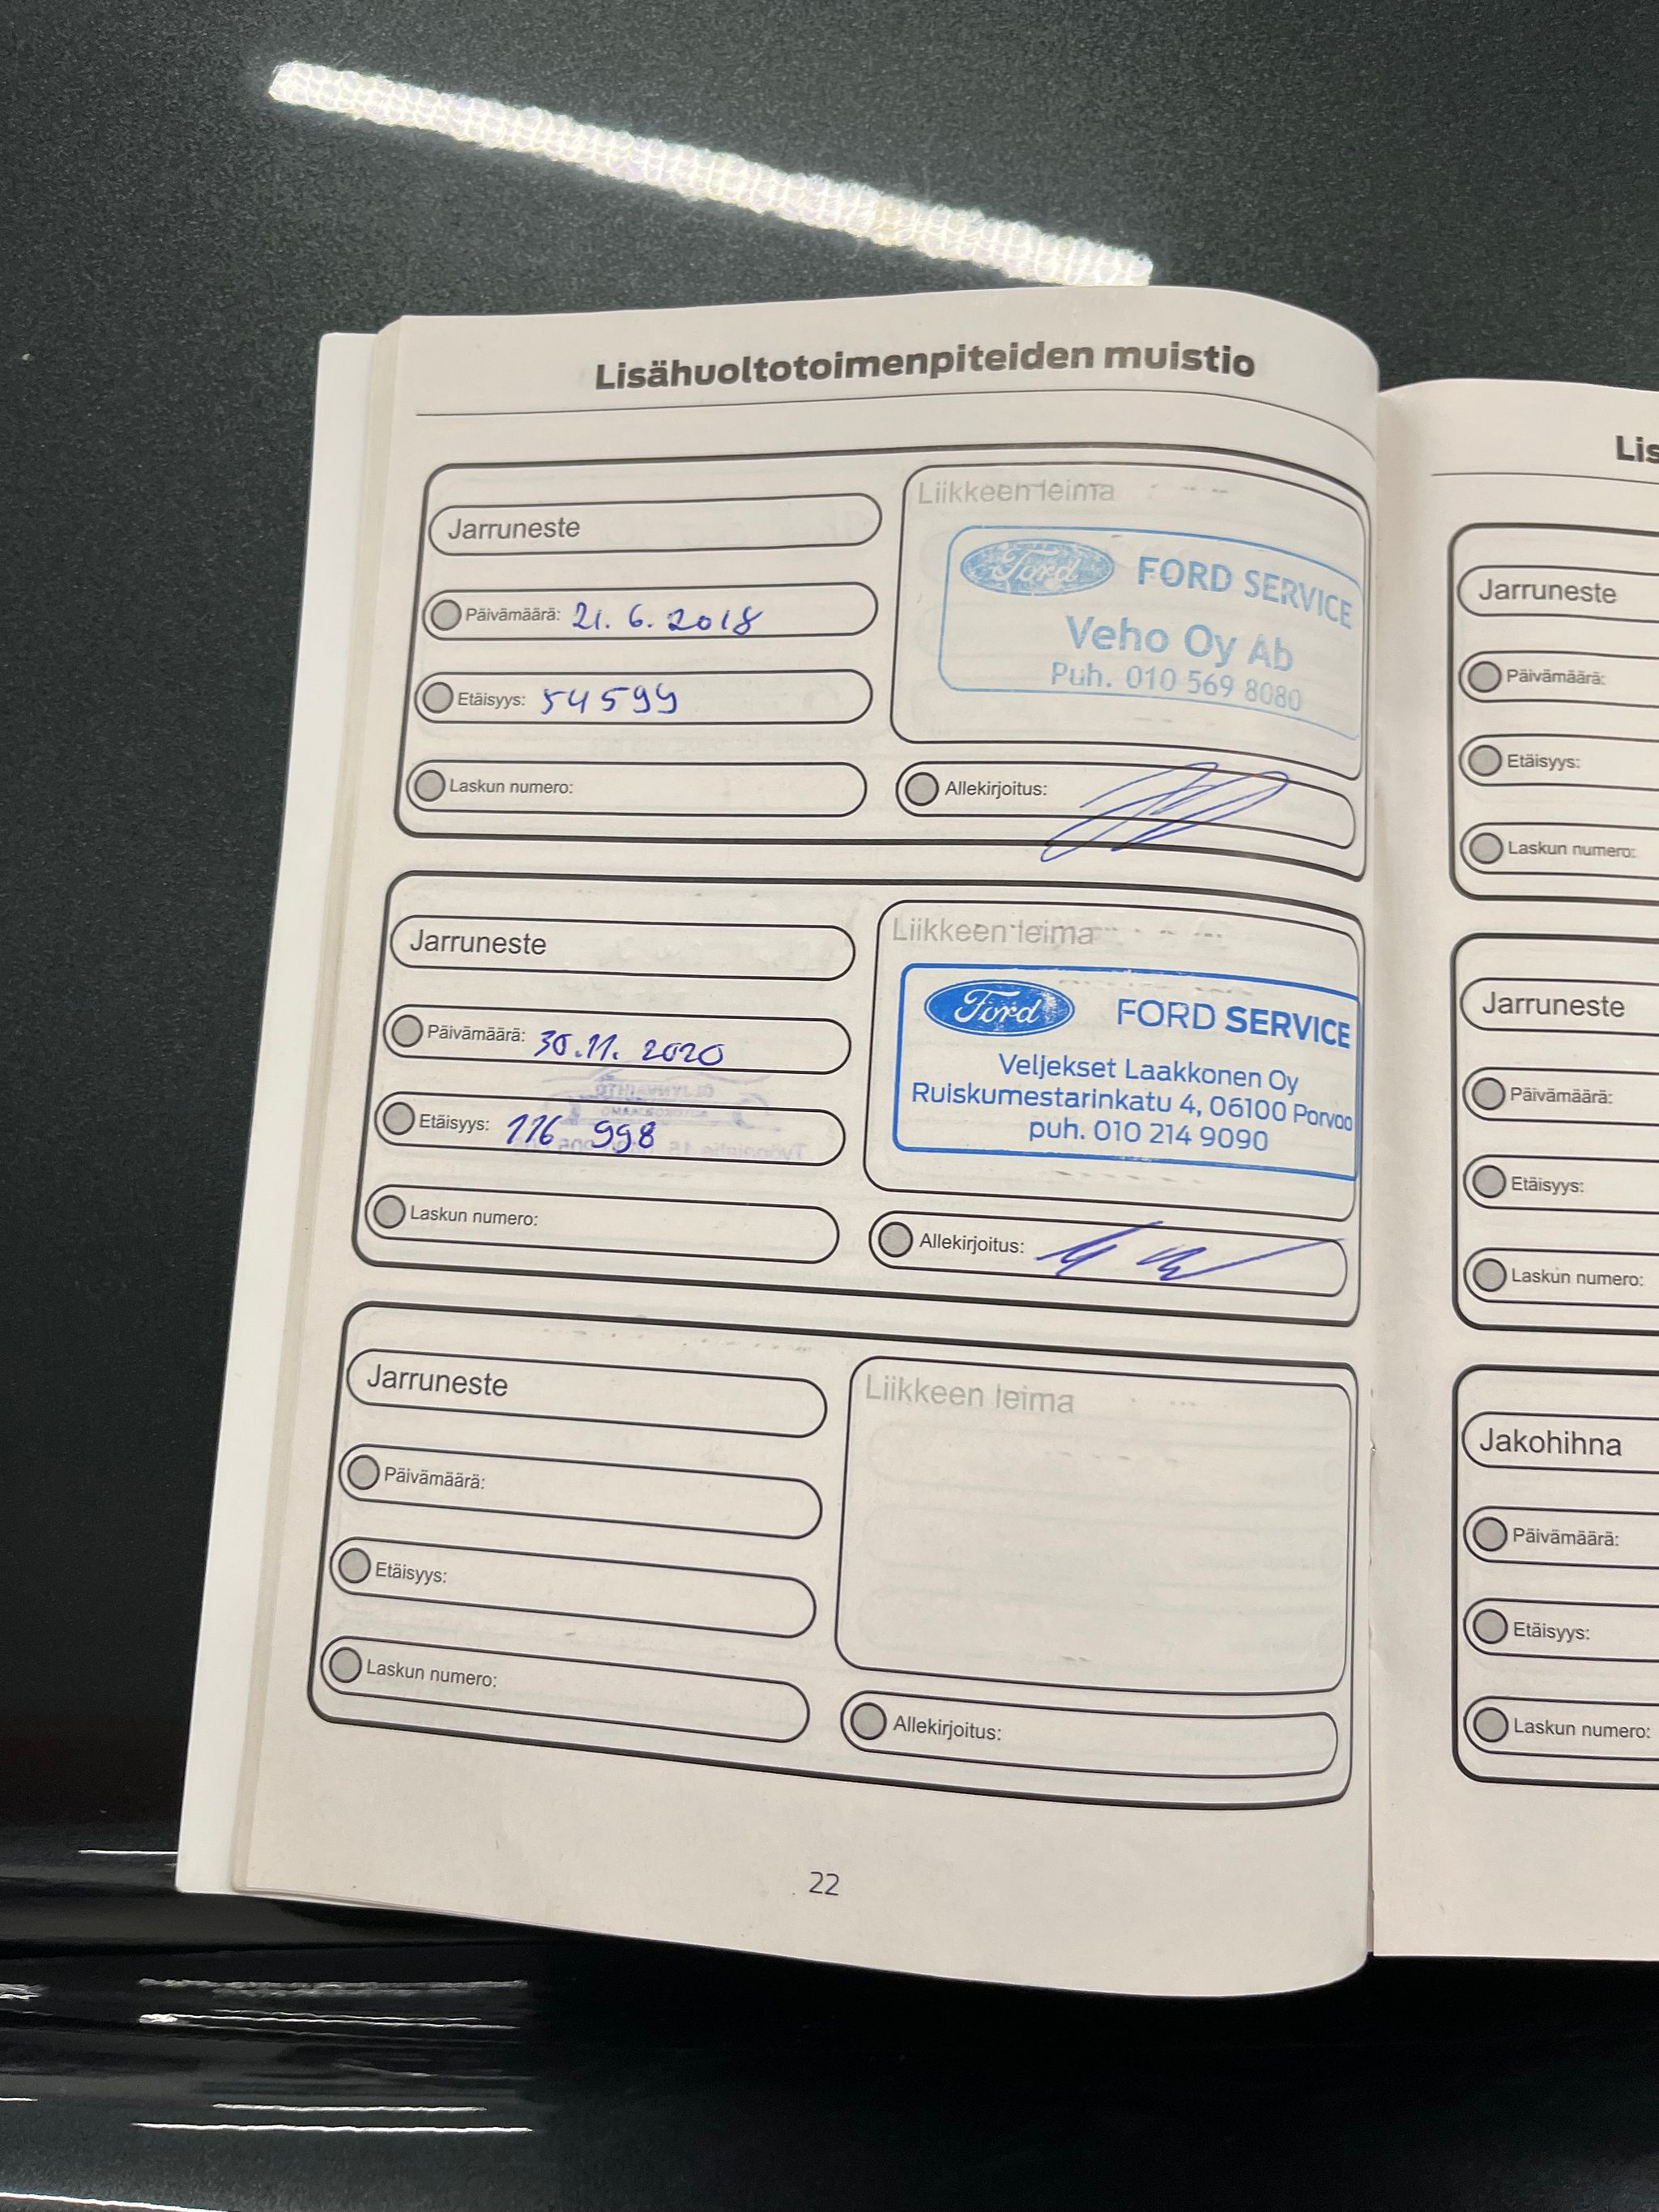 Lisähuoltotoimenpiteiden muistio
Jarruneste
Päivämäärä: 21.6.2018
Etäisyys: 54599
Laskun numero:
Liikkeen leima
Ford FORD SERVICE
Veho Oy Ab
Puh. 010 569 8080
Allekirjoitus:
Jarruneste
Päivämäärä: 30.11.2020
Etäisyys: 116 998
Laskun numero:
Liikkeen leima
Ford FORD SERVICE
Veljekset Laakkonen Oy
Ruiskumestarinkatu 4, 06100 Porvoo
puh. 010 214 9090
Allekirjoitus:
Jarruneste
Päivämäärä:
Etäisyys:
Laskun numero:
Liikkeen leima
Allekirjoitus:
22
Lis
Jarruneste
Päivämäärä:
Etäisyys:
Laskun numero:
Jarruneste
Päivämäärä:
Etäisyys:
Laskun numero:
Jakohihna
Päivämäärä:
Etäisyys:
Laskun numero: